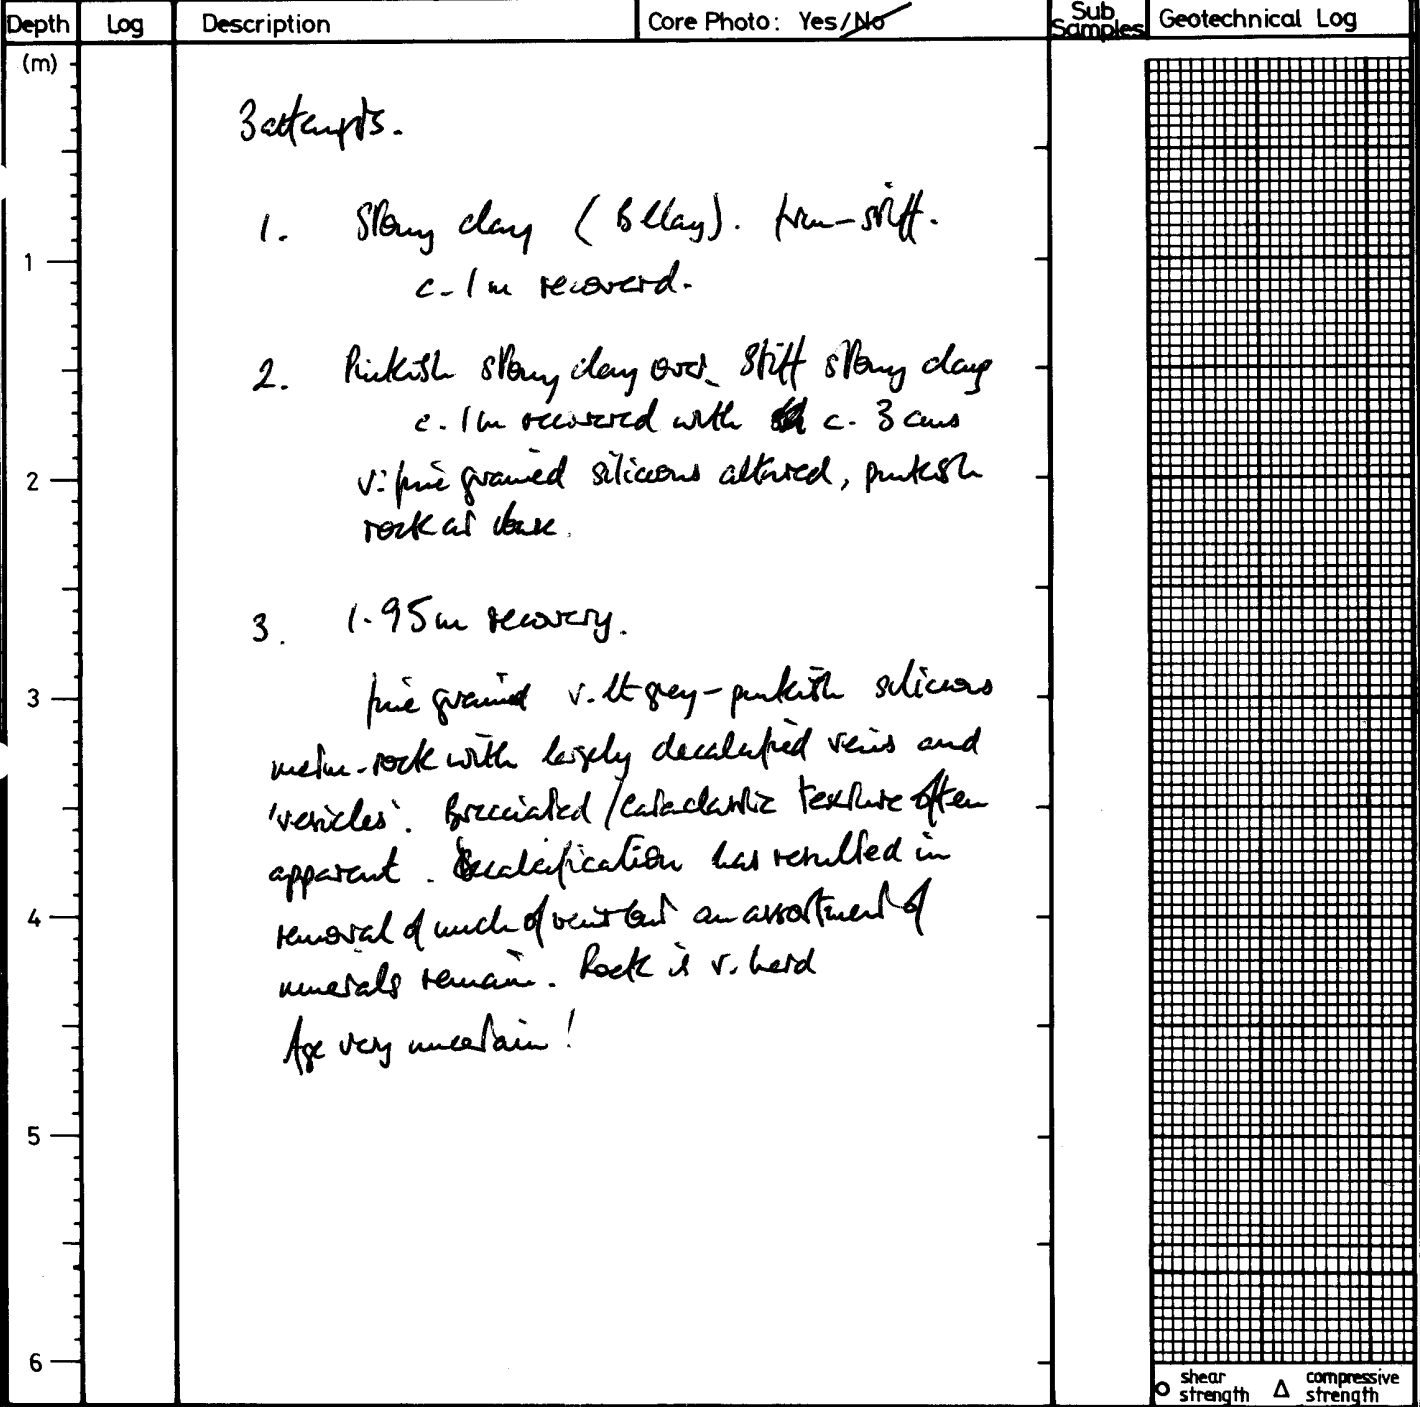 Depth Log Description Core Photo: Yes/No Sub Samples Geotechnical Log
(m)
3 attempts.
1. Stony clay (B Clay). firm-stiff.
1
c. 1m recoverd.
2. Pinkish stony clay over stiff stony clay
c. 1m recovered with c. 3 cms
2
v. fine grained silicious altered, pinkish
rock at base.
3. 1.95m recovery.
3
fine grained v. lt grey-pinkish silicious
meta-rock with largely decalcified veins and
'vesicles'. Brecciated/cataclastic texture often
apparent. Decalcification has resulted in
4
removal of much of vein but an assortment of
minerals remain. Rock is v. hard
Age very uncertain!
5
6
shear strength compressive strength